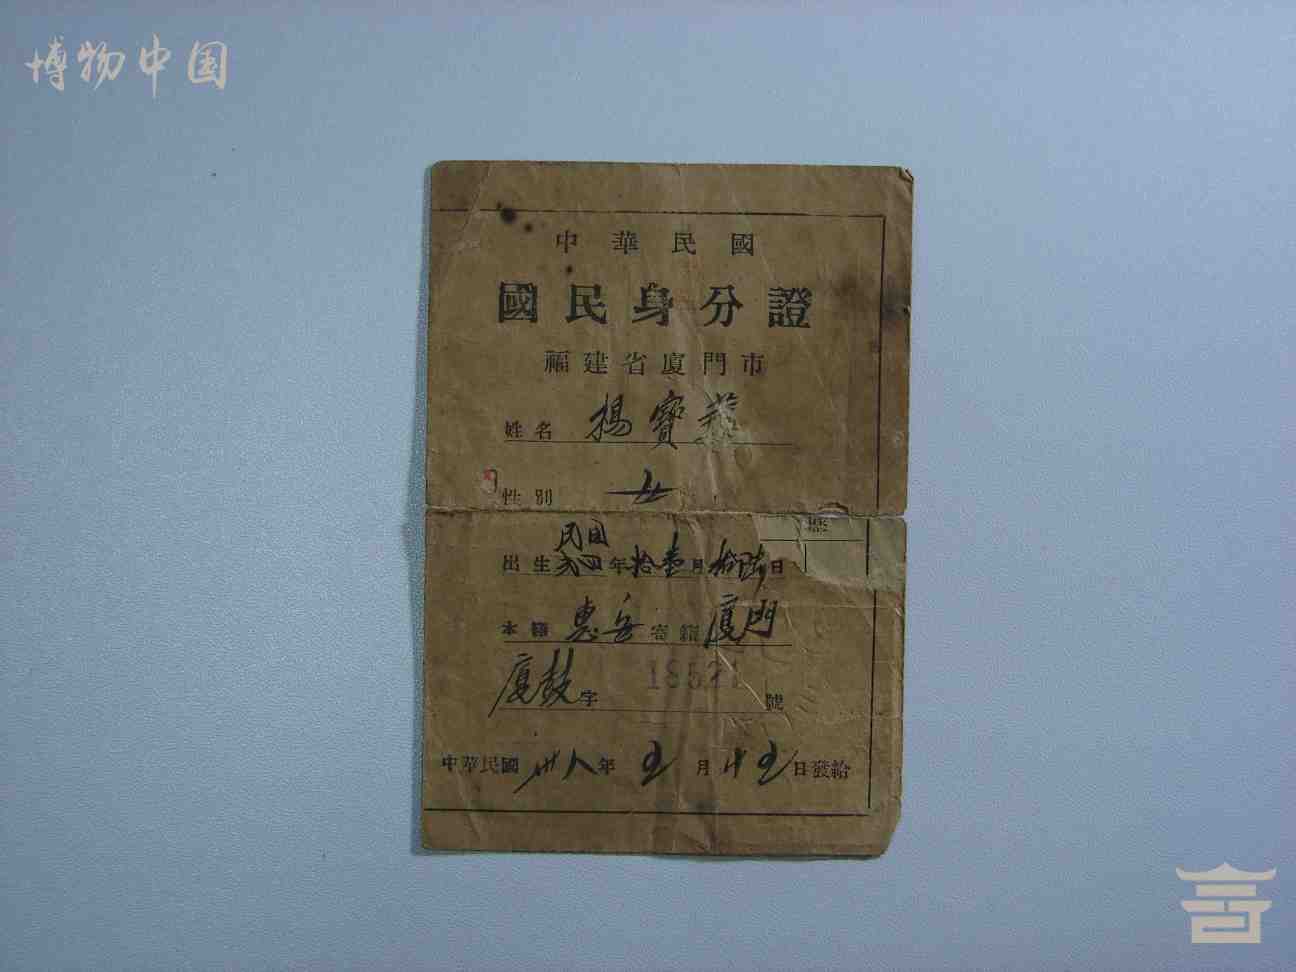 博物中国
中華民國
國民身分證
福建省廈門市
姓名 楊寶
性別 女
歷
出生 民国 弍四 年 拾壹 月 拾陆 日
本籍 惠安 寄籍 廈門
廈鼓 字 18521 號
中華民國 卅八 年 五 月 廿五 日發給